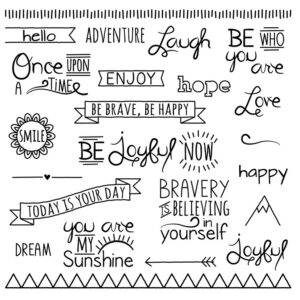 hello
ADVENTURE
Laugh
BE WHO
you are
Once UPON
A TIME
ENJOY
hope
Love
BE BRAVE, BE HAPPY
SMILE
BE Joyful NOW
happy
TODAY IS YOUR DAY
BRAVERY
IS BELIEVING
in
yourself
DREAM
you are
MY
Sunshine
Joyful